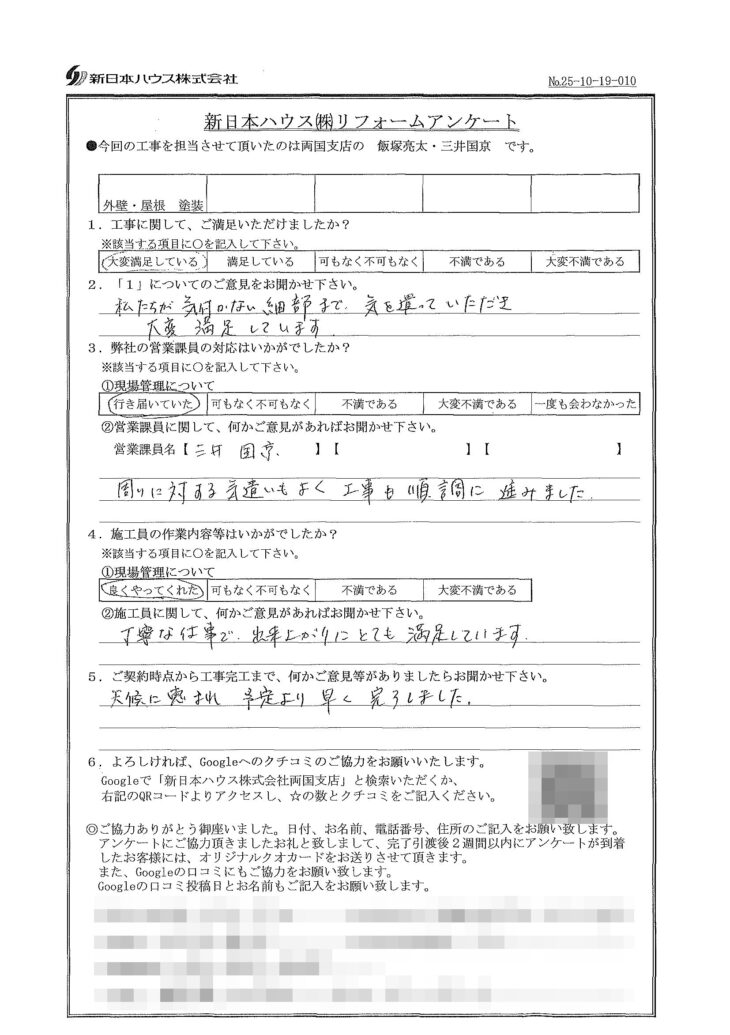 新日本ハウス株式会社
№25-10-19-010
新日本ハウス㈱リフォームアンケート
●今回の工事を担当させて頂いたのは両国支店の 飯塚亮太・三井国京 です。
外壁・屋根 塗装
1．工事に関して、ご満足いただけましたか？
※該当する項目に○を記入して下さい。
大変満足している 満足している 可もなく不可もなく 不満である 大変不満である
2．「1」についてのご意見をお聞かせ下さい。
私たちが気付かない細部まで、気を遣っていただき
大変満足しています
3．弊社の営業課員の対応はいかがでしたか？
※該当する項目に○を記入して下さい。
①現場管理について
行き届いていた 可もなく不可もなく 不満である 大変不満である 一度も会わなかった
②営業課員に関して、何かご意見があればお聞かせ下さい。
営業課員名【三井 国京. 】【 】【 】
周りに対する気遣いもよく 工事も順調に進みました.
4．施工員の作業内容等はいかがでしたか？
※該当する項目に○を記入して下さい。
①現場管理について
良くやってくれた 可もなく不可もなく 不満である 大変不満である
②施工員に関して、何かご意見があればお聞かせ下さい。
丁寧な仕事で、出来上がりにとても満足しています.
5．ご契約時点から工事完工まで、何かご意見等がありましたらお聞かせ下さい。
天候に恵まれ 予定より早く完了しました.
6．よろしければ、Googleへのクチコミのご協力をお願いいたします。
Googleで「新日本ハウス株式会社両国支店」と検索いただくか、
右記のQRコードよりアクセスし、☆の数とクチコミをご記入ください。
◎ご協力ありがとう御座いました。日付、お名前、電話番号、住所のご記入をお願い致します。
アンケートにご協力頂きましたお礼と致しまして、完了引渡後2週間以内にアンケートが到着
したお客様には、オリジナルクオカードをお送りさせて頂きます。
また、Googleの口コミにもご協力をお願い致します。
Googleの口コミ投稿日とお名前もご記入をお願い致します。